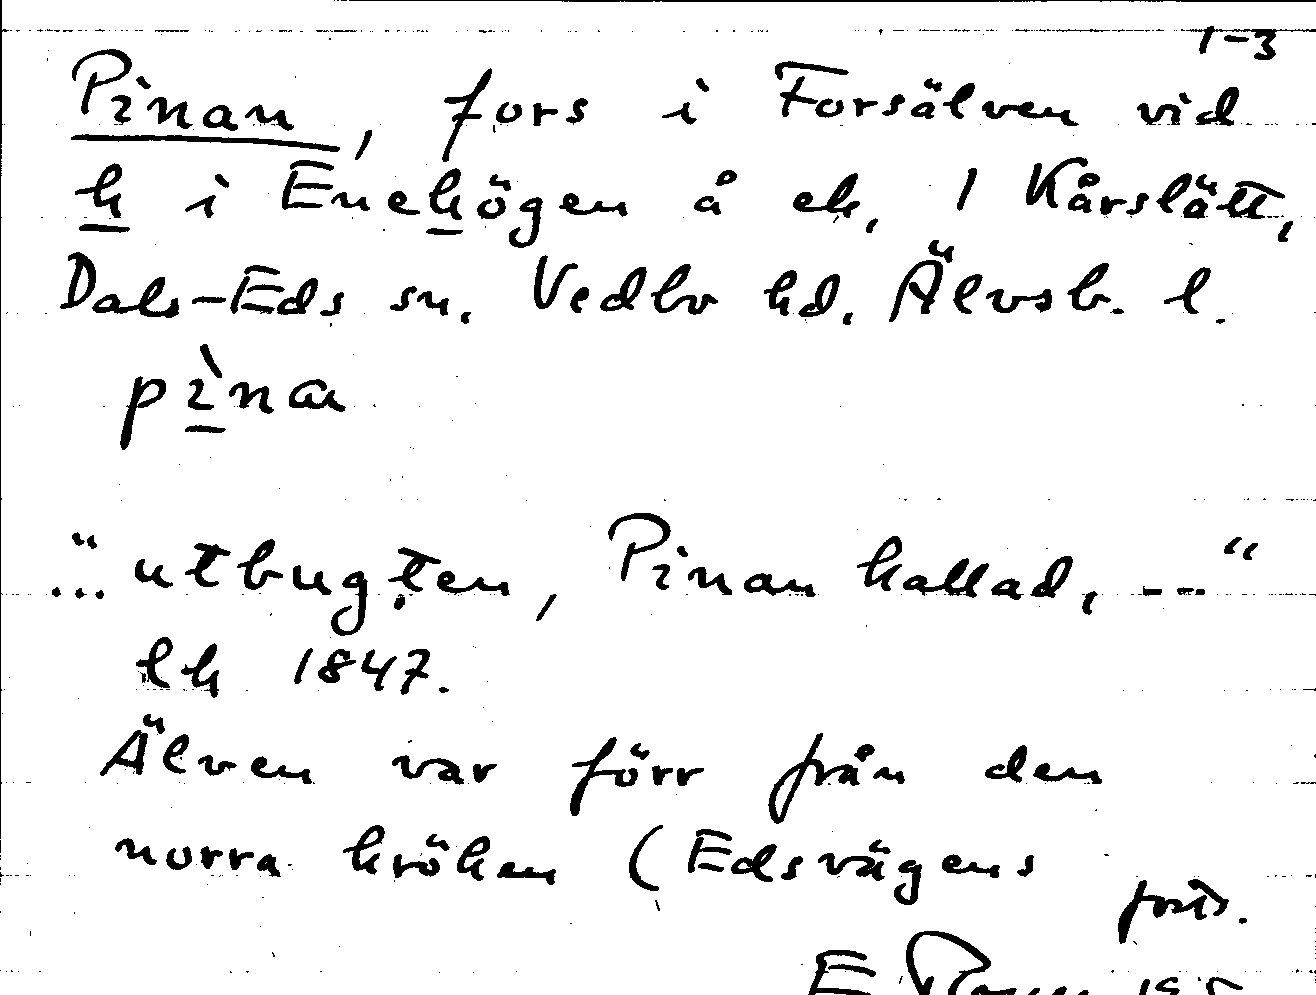 1-3
Pinan, fors i Forsälven vid
k i Enekögen å ek. 1 Kårslätt,
Dals-Eds sn. Vedbo hd. Älvsb. l.
pìna
"... utbugten, Pinan kallad, --"
lk 1847.
Älven var förr från den
norra kröken (Edsvägens
forts.
E